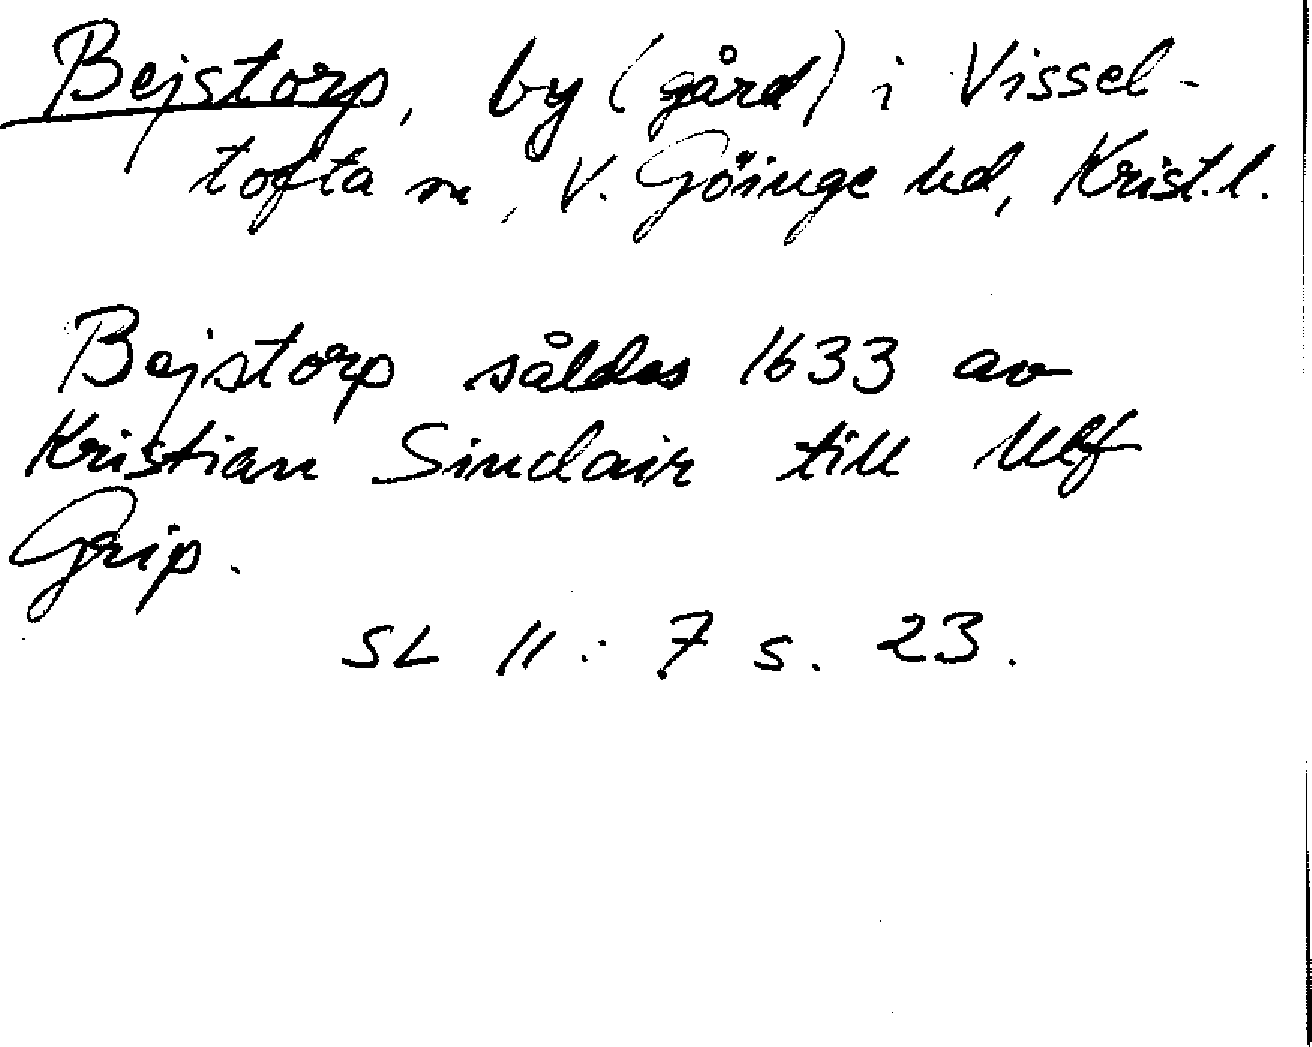 Bejstorp, by (gård) i Vissel-
tofta sn, V. Göinge hd, Krist.l.
Bejstorp såldes 1633 av
Kristian Sinclair till Ulf
Grip.
SL 11:7 s. 23.